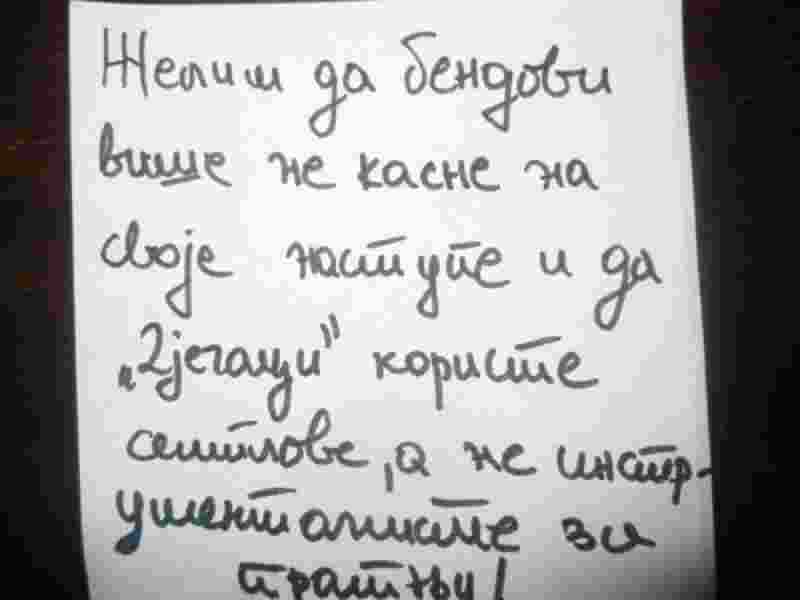 Желим да бендови
више не касне на
своје наступе и да
користе
семплове, а не инстр-
ументалисте за
пратњу!